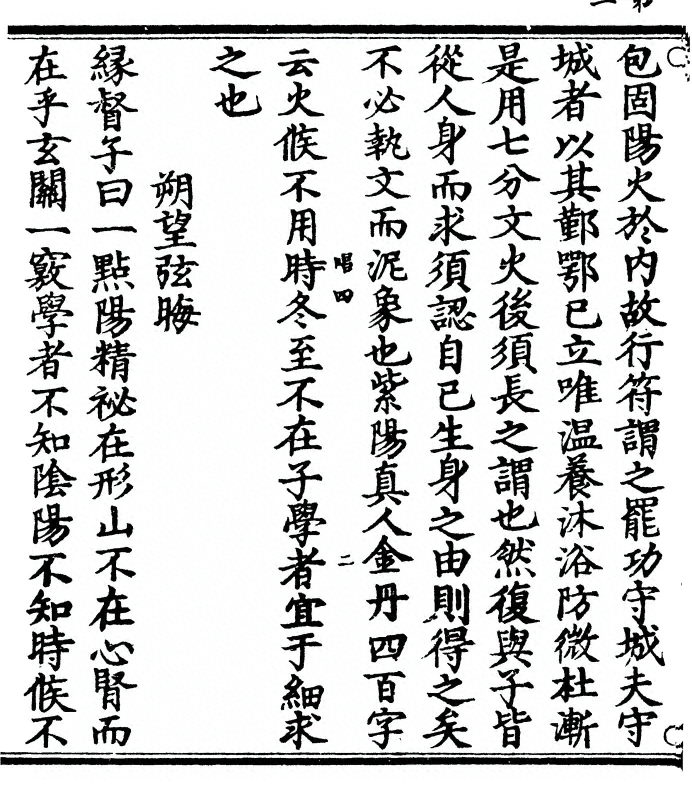 包固陽火於内故行符謂之罷功守城夫守
城者以其鄞鄂已立唯温養沐浴防微杜漸
是用七分文火後須長之謂也然復與子皆
從人身而求須認自己生身之由則得之矣
不必執文而泥象也紫陽真人金丹四百字
唱四
二
云火候不用時冬至不在子學者宜于細求
之也
朔望弦晦
緣督子曰一點陽精祕在形山不在心腎而
在乎玄關一竅學者不知陰陽不知時候不